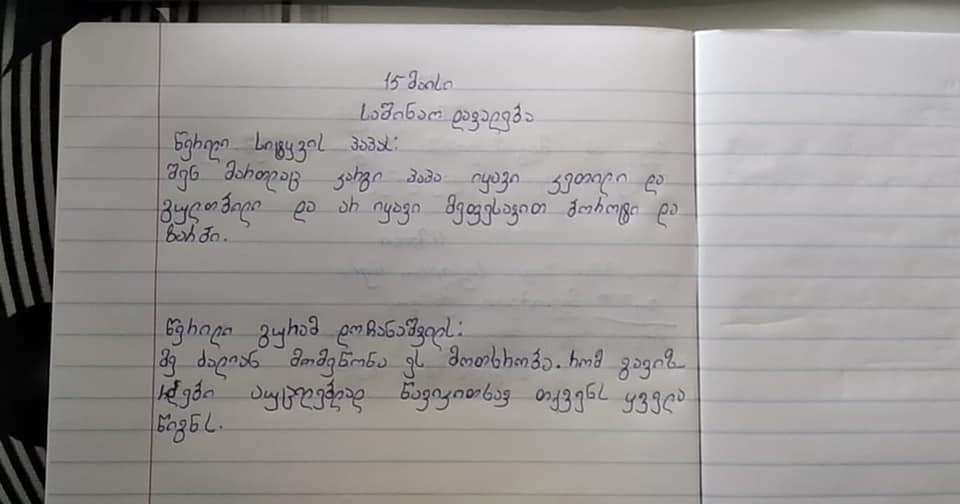 15 მაისი
საშინაო დავალება
წერილი სიტყვის პაპას:
შენ მართლაც კარგი პაპა იყავი კეთილი და
გულთბილი და არ იყავი მეფესავით ბოროტი და
ხარბი.
წერილი გურამ დოჩანაშვილს:
მე ძალიან მომეწონა ეს მოთხრობა. რომ გავიზ-
რდები აუცილებლად წავიკითხავ თქვენს ყველა
წიგნს.